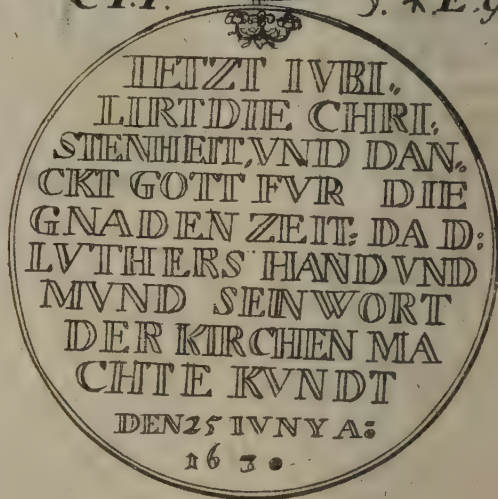 IETZT IVBI.
LIRT DIE CHRI:
STENHEIT, VND DAN.
CKT GOTT FVR DIE
GNADEN ZEIT: DA D:
LVTHERS HAND VND
MVND SEIN WORT
DER KIRCHEN MA
CHTE KVNDT
DEN 25 IVNY A:
1630